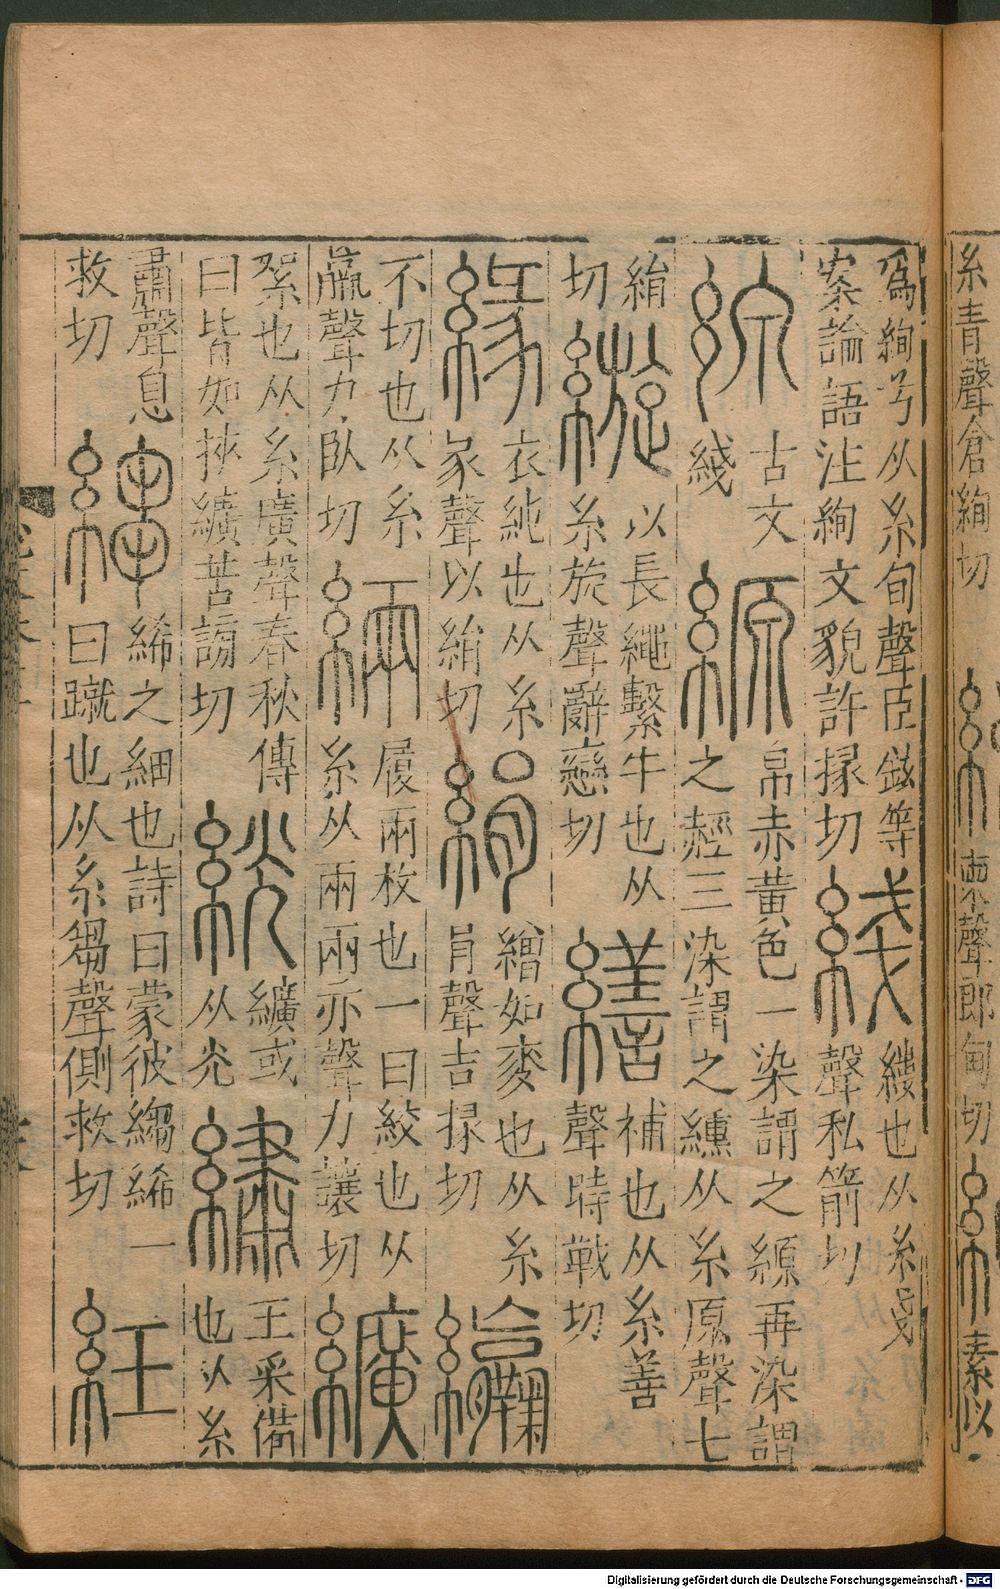 糸青聲倉絢切
聲郎甸切
素以
爲絢兮从糸旬聲臣鉉等
案論語注絢文貌許掾切
綫
縷也从糸戔
聲私箭切
線
古文
綫
縓
帛赤黃色一染謂之縓再染謂
之䞓三染謂之纁从糸原聲七
絹
切
縼
以長繩繫牛也从
糸旋聲辭戀切
繕
補也从糸善
聲時戰切
緣
衣純也从糸
彖聲以絹切
絹
繒如麥也从糸
肙聲吉掾切
不切也从糸
羸聲力臥切
緉
履兩枚也一曰絞也从
糸从兩兩亦聲力讓切
纊
絮也从糸廣聲春秋傳
曰皆如挾纊苦謗切
絖
纊或
从光
繡
王采備
也从糸
肅聲息
救切
縐
絺之細也詩曰蒙彼縐絺一
曰蹴也从糸芻聲側救切
紅
Digitalisierung gefördert durch die Deutsche Forschungsgemeinschaft - DFG